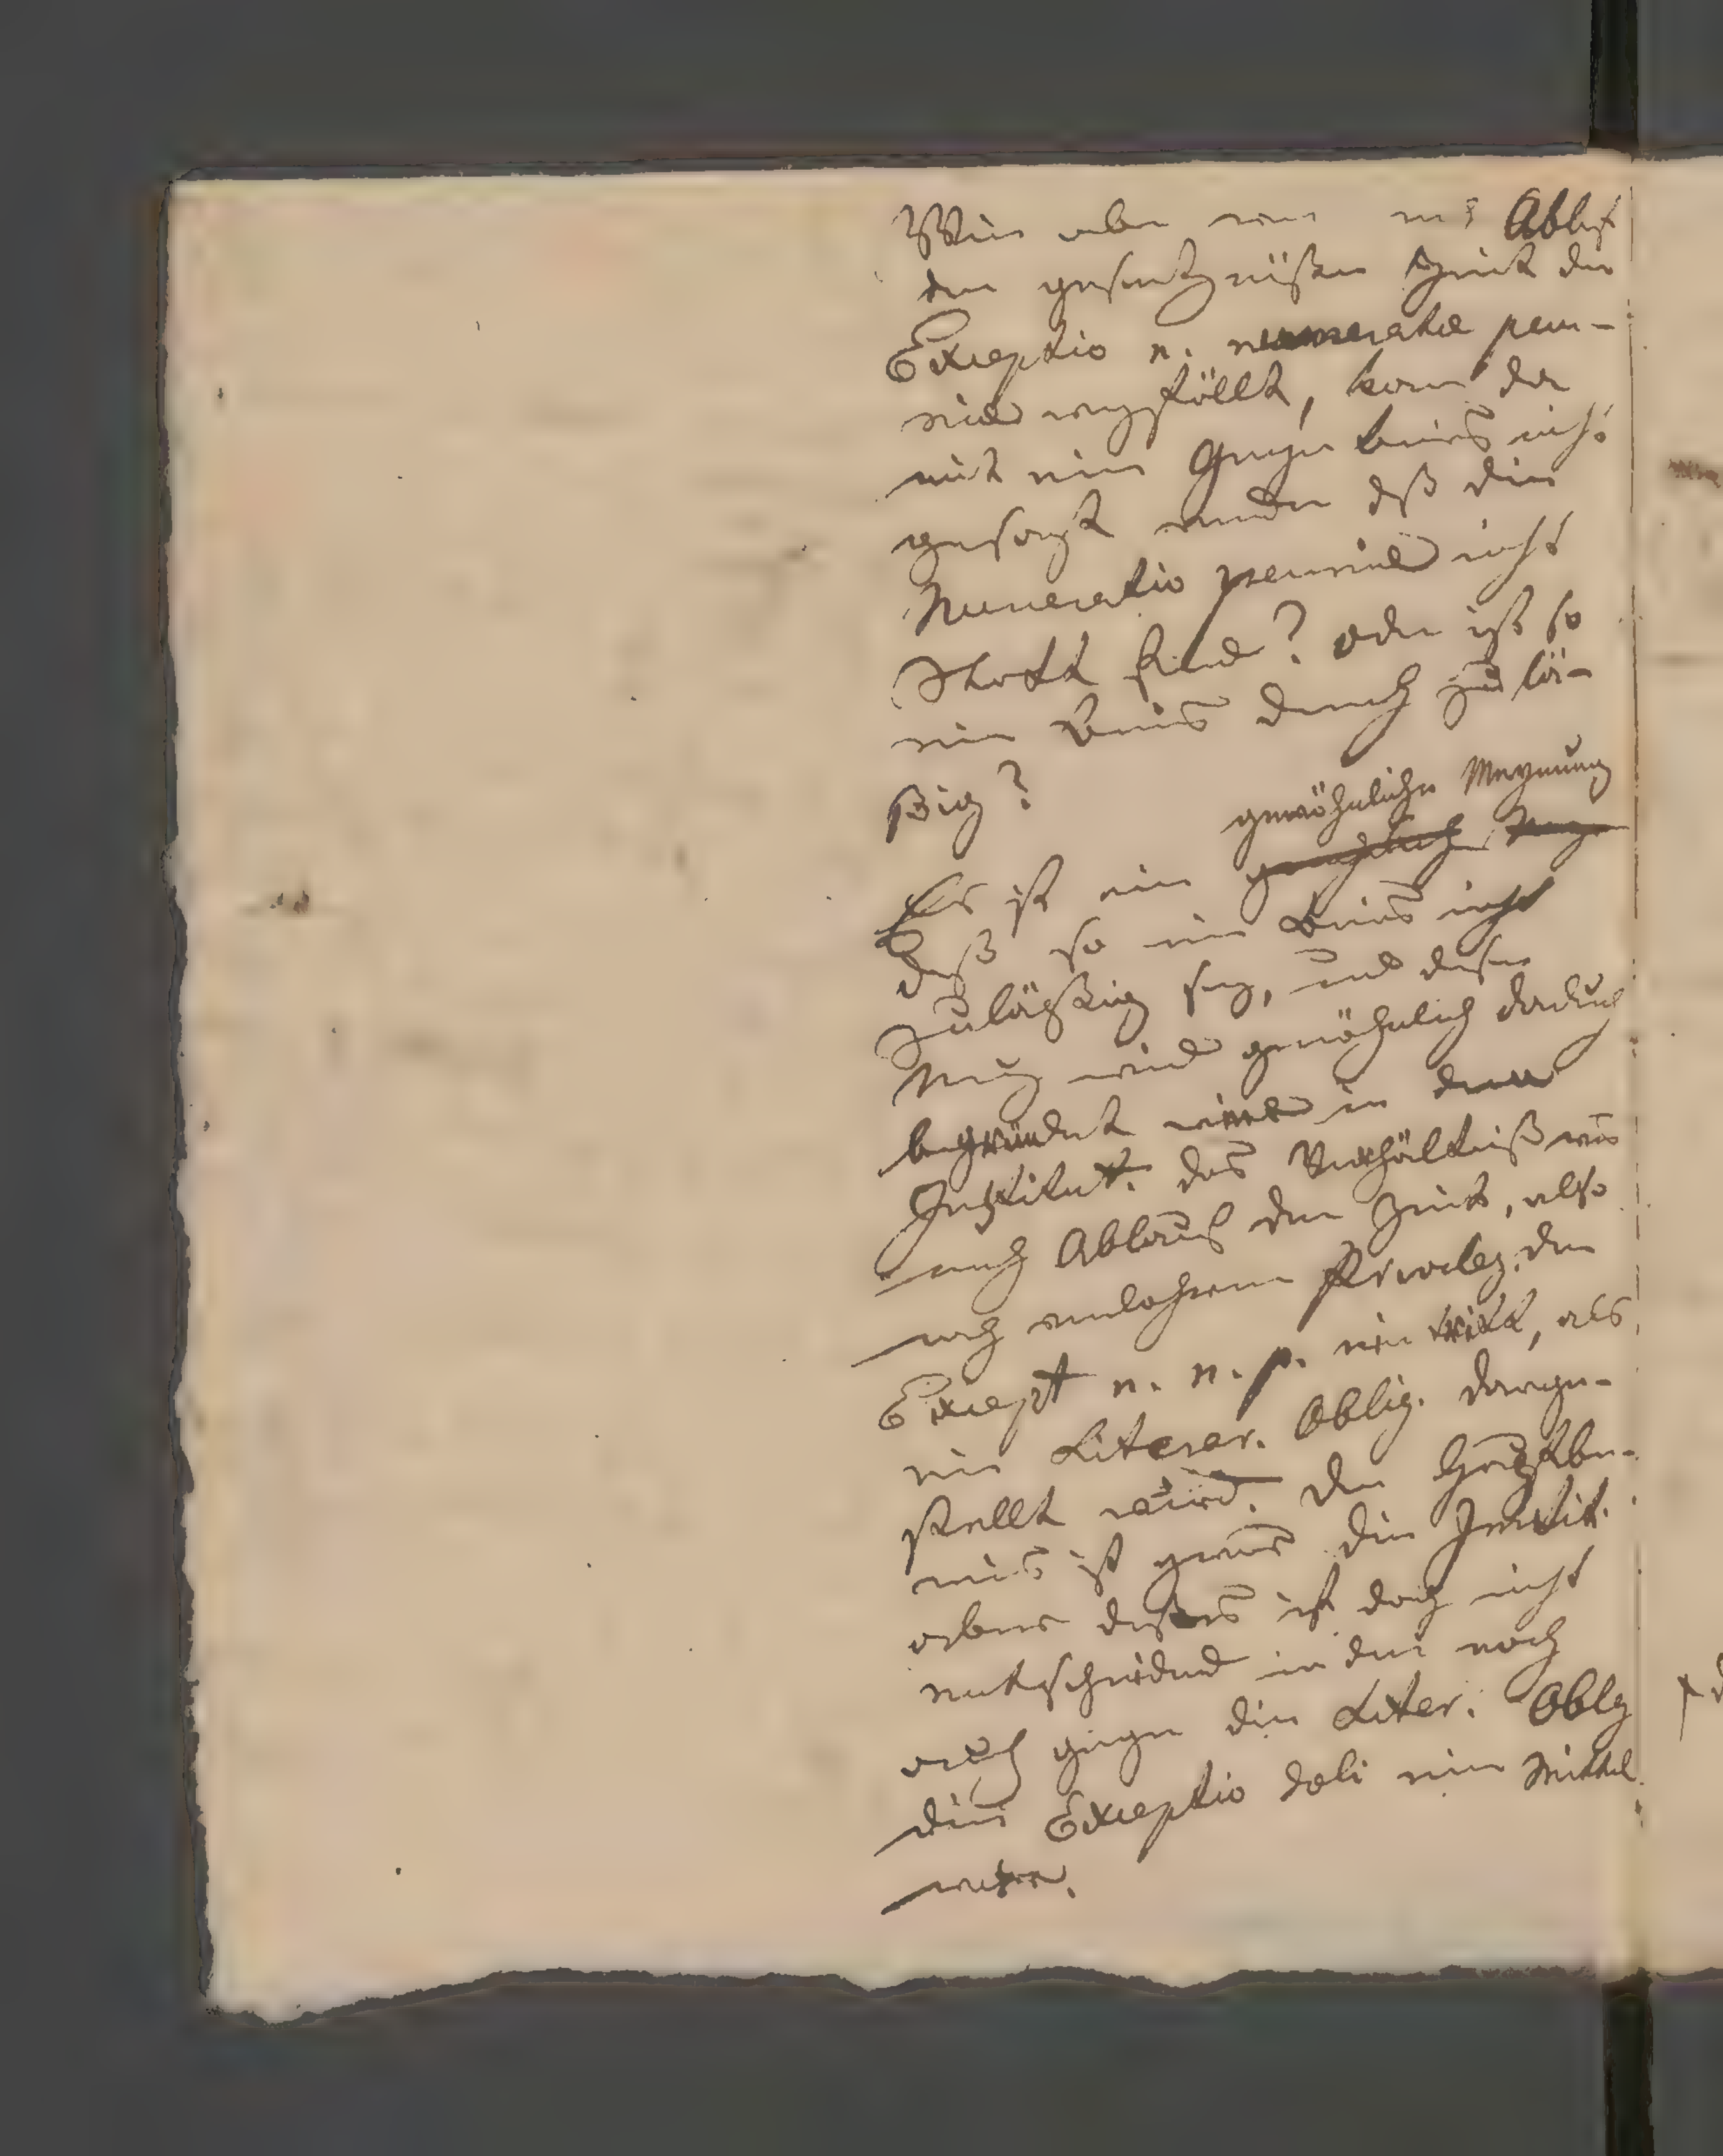 Wie aber wenn nach Ablauf
der gesetzmäßigen Zeit die
Exceptio n. numeratae pecu-
niae wegfällt, kann da
mit ein Gegenbeweis nicht
gesagt werden daß die
Numeratio pecuniae nicht
Statt fand? oder ist so
ein Beweis durchh zulä-
ßig?
gewöhnliche Meynung
Es ist eine
daß so ein Beweis nicht
zuläßig sey, und diese
Mng wird gewöhnlich dadurch
begründet weil in den
Institut. das Verhältniß wie
nach Ablauf der Zeit, also
nach verlohrenem Privileg. der
Except n. n. p. eintritt, als
eine Literar. Oblig. darge-
stellt wird. Der Hauptbe-
weis ist gewis die Instit.
aber dieses ist doch nicht
entscheidend indem noch
auch gegen die Liter. Oblg
die Exceptio doli ein Mittel
wäre.